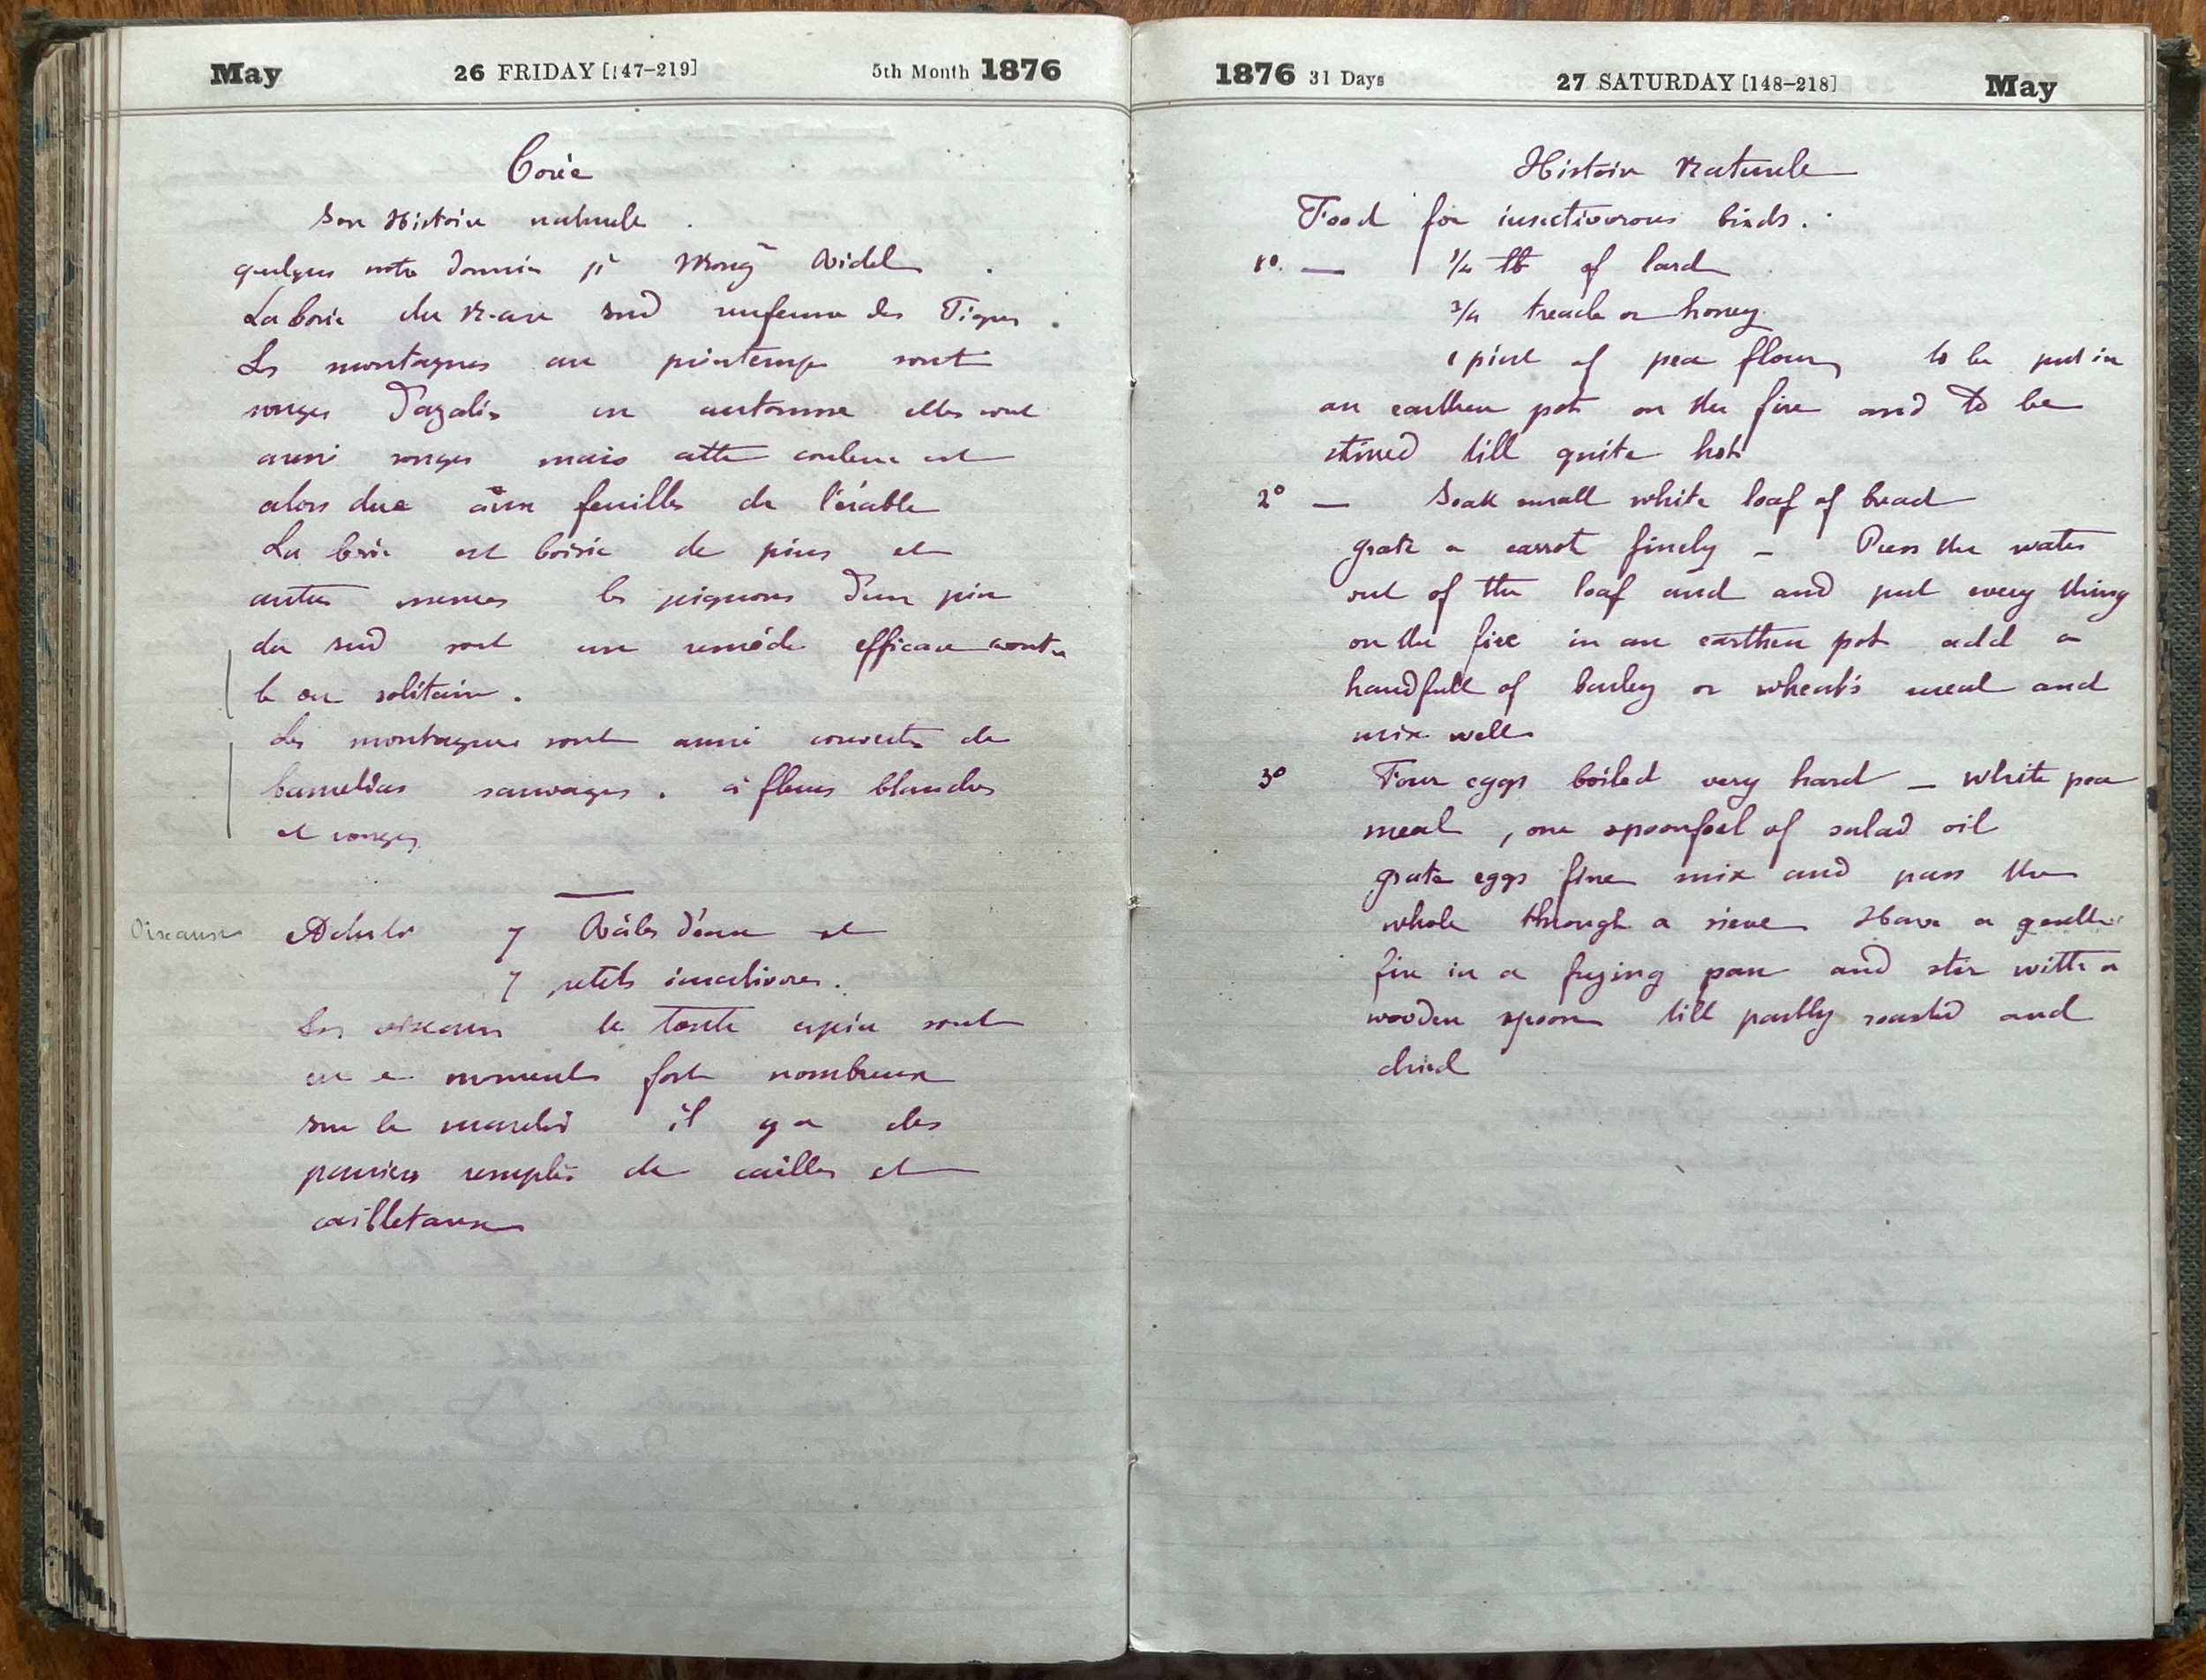 May 26 FRIDAY [147-219] 5th Month 1876
Corée
Son Histoire naturelle.
quelques notes données pr Mongr Ridel.
La Corée du N. au Sud renferme des Tigres.
Les montagnes au printemps sont
rouges d'azalées en automne elles sont
aussi rouges mais cette couleur est
alors due aux feuilles de l'érable
La Corée est boisée de pins et
autres les pignons d'un pin
du sud sont un remède efficace contre
le ver solitaire.
Les montagnes sont aussi couvertes de
Camelias sauvages. à fleurs blanches
et rouges
Oiseaux Achete 7 Râles d'eau et
7 petits insectivores.
Les oiseaux de toute espèce sont
en ce moment fort nombreux
sur le marché il y a des
paniers remplis de cailles et
cailletaux
1876 31 Days 27 SATURDAY [148-218] May
Histoire Naturelle
Food for insectivorous birds.
1º. — 1/4 lb of lard
3/4 treacle or honey
1 pint of pea flour, to be put in
an earthen pot on the fire and to be
stirred till quite hot
2º — Soak small white loaf of bread
grate a carrot finely — Press the water
out of the loaf and and put every thing
on the fire in an earthen pot add a
handfull of barley or wheat's meal and
mix well
3º Four eggs boiled very hard — white pea
meal, one spoonfoel of salad oil
grate eggs fine mix and pass the
whole through a sieve Have a gentle
fire in a frying pan and stir with a
wooden spoon till partly roasted and
dried